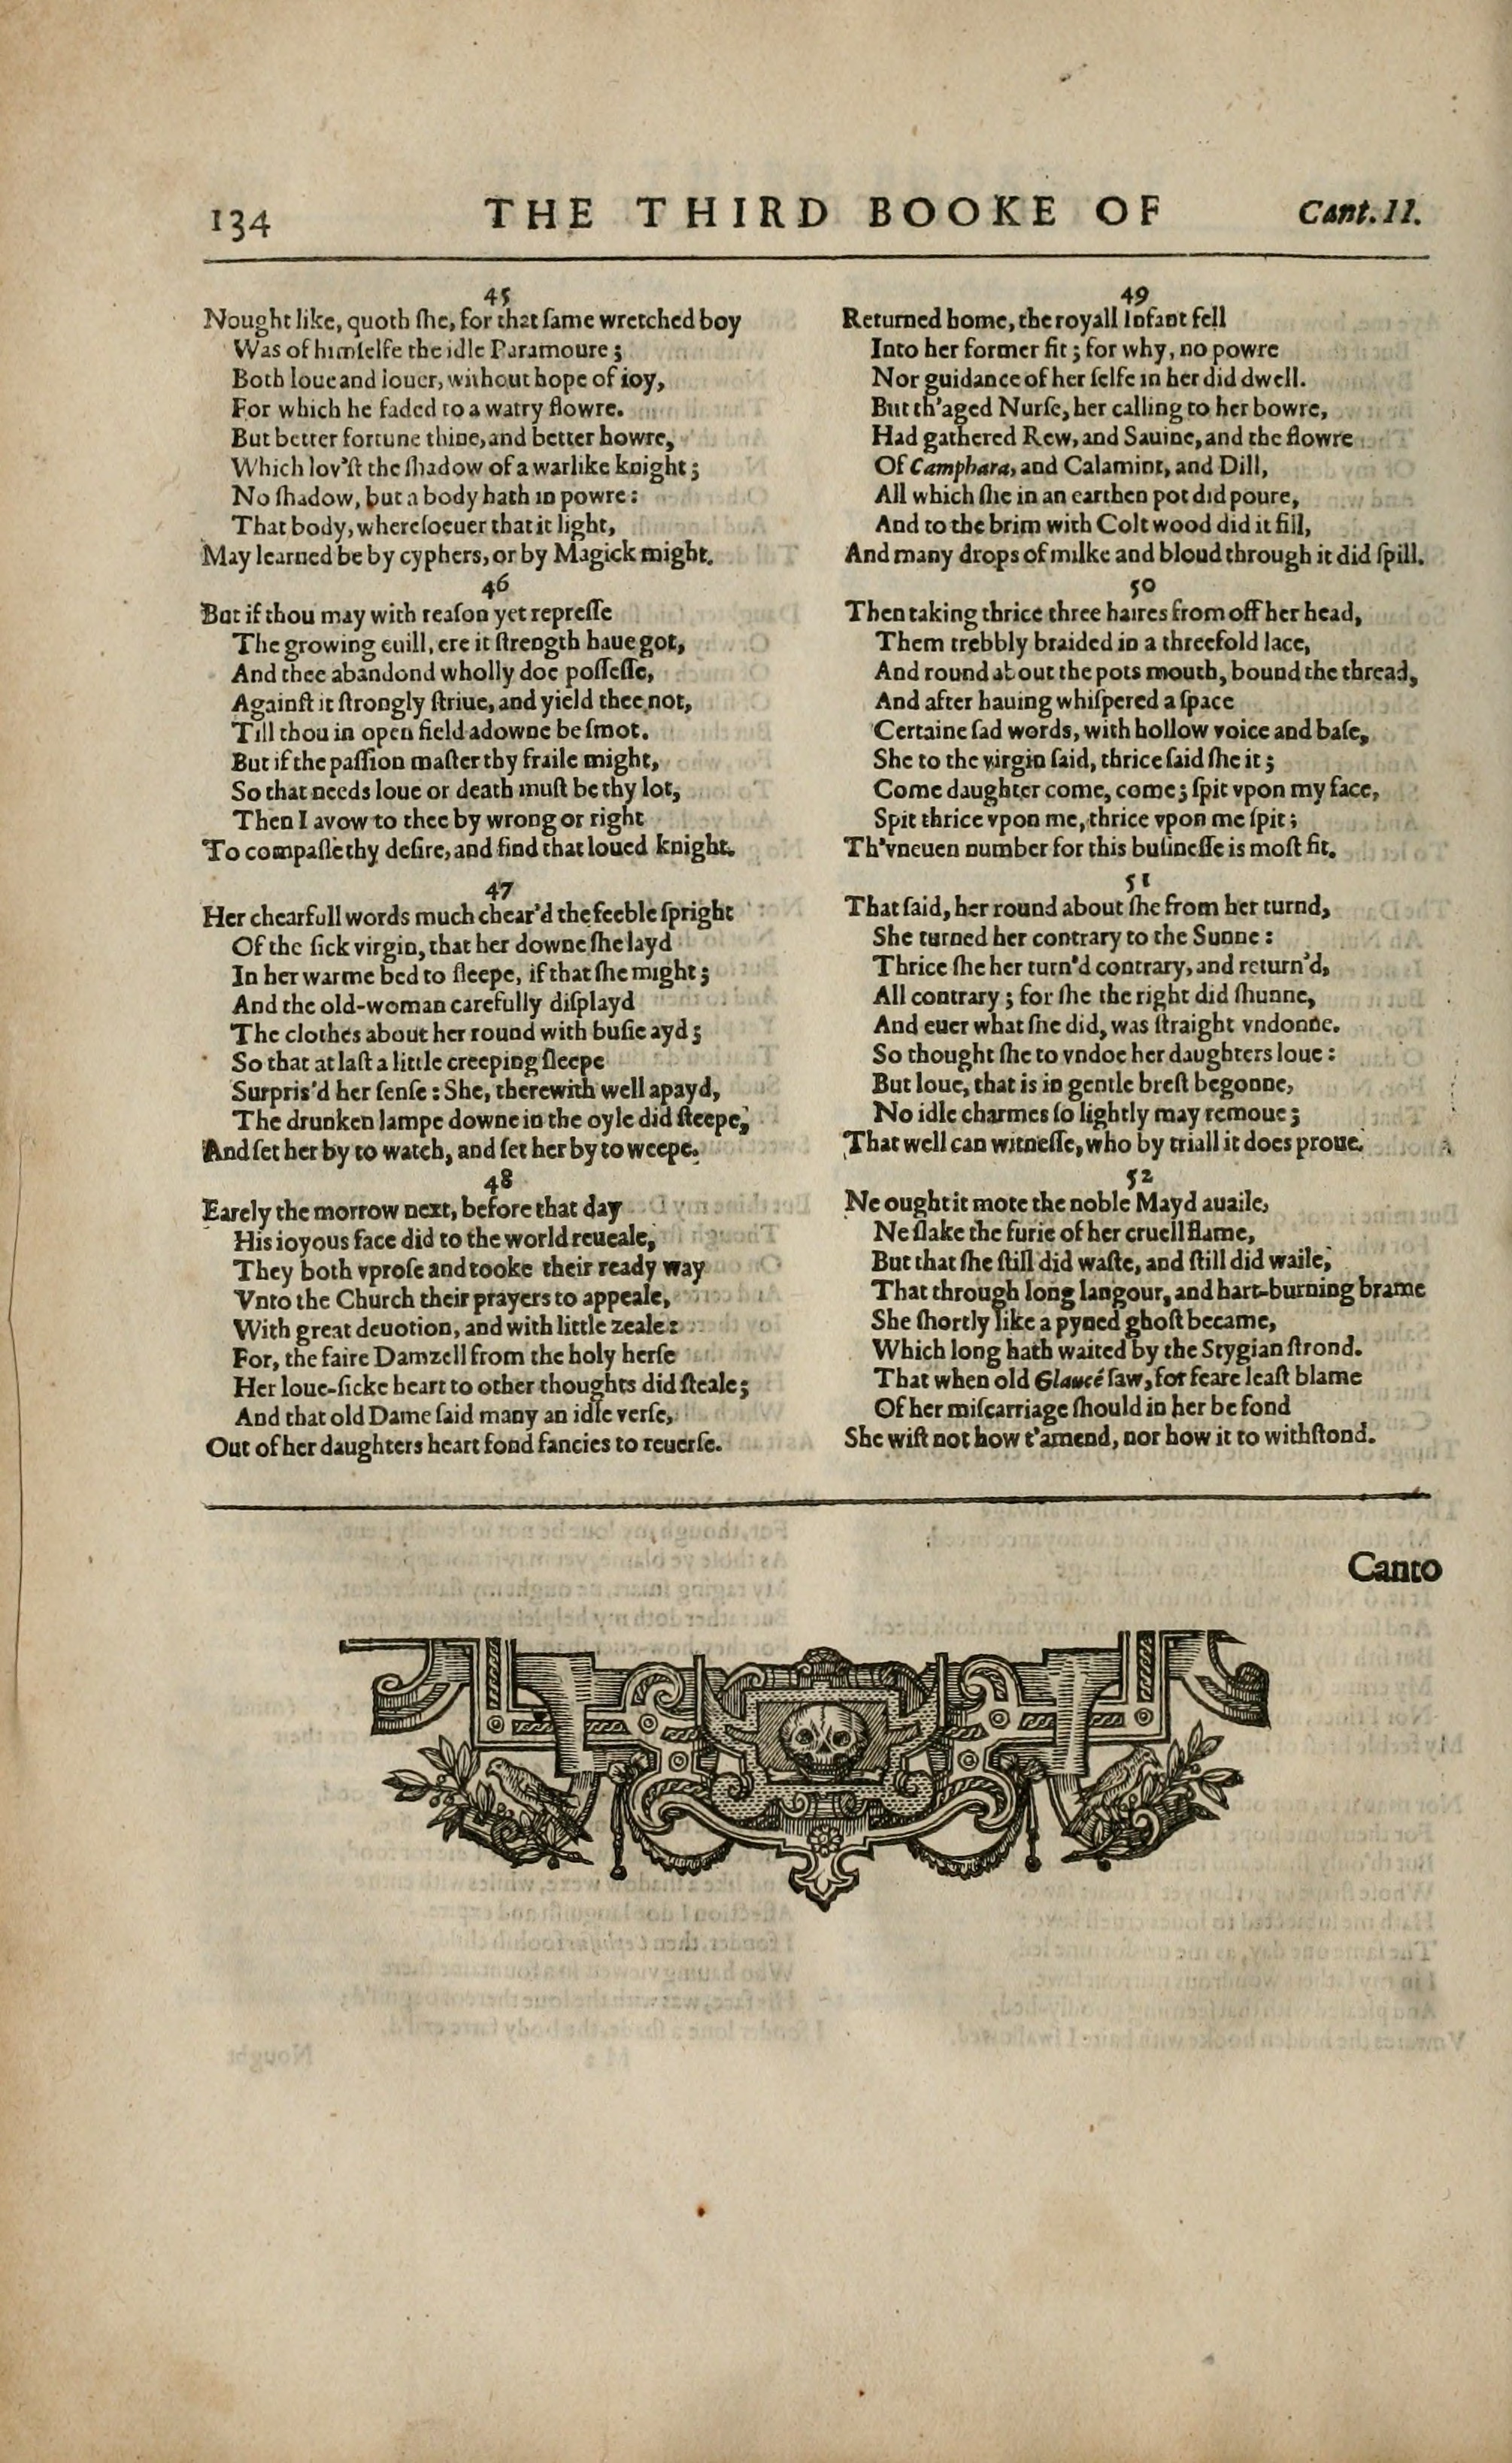 134 THE THIRD BOOKE OF Cant. II.
45
Nought like, quoth ſhe, for that ſame wretched boy
Was of himſelfe the idle Paramoure;
Both loue and louer, without hope of ioy,
For which he faded to a watry flowre.
But better fortune thine, and better howre,
Which lov'ſt the ſhadow of a warlike knight;
No ſhadow, but a body hath in powre:
That body, whereſoeuer that it light,
May learned be by cyphers, or by Magick might.
46
But if thou may with reaſon yet repreſſe
The growing euill, ere it ſtrength haue got,
And thee abandond wholly doe poſſeſſe,
Againſt it ſtrongly ſtriue, and yield thee not,
Till thou in open field adowne be ſmot.
But if the paſſion maſter thy fraile might,
So that needs loue or death muſt be thy lot,
Then I avow to thee by wrong or right
To compaſſe thy deſire, and find that loued knight.
47
Her chearfull words much chear'd the feeble ſpright
Of the ſick virgin, that her downe ſhe layd
In her warme bed to ſleepe, if that ſhe might;
And the old-woman carefully diſplayd
The clothes about her round with buſie ayd;
So that at laſt a little creeping ſleepe
Surpris'd her ſenſe: She, therewith well apayd,
The drunken lampe downe in the oyle did ſteepe,
And ſet her by to watch, and ſet her by to weepe.
48
Earely the morrow next, before that day
His ioyous face did to the world reueale,
They both vproſe and tooke their ready way
Vnto the Church their prayers to appeale,
With great deuotion, and with little zeale:
For, the faire Damzell from the holy herſe
Her loue-ſicke heart to other thoughts did ſteale;
And that old Dame ſaid many an idle verſe,
Out of her daughters heart fond fancies to reuerſe.
49
Returned home, the royall Infant fell
Into her former fit; for why, no powre
Nor guidance of her ſelfe in her did dwell.
But th'aged Nurſe, her calling to her bowre,
Had gathered Rew, and Sauine, and the flowre
Of Camphara, and Calamint, and Dill,
All which ſhe in an earthen pot did poure,
And to the brim with Colt wood did it fill,
And many drops of milke and bloud through it did ſpill.
50
Then taking thrice three haires from off her head,
Them trebbly braided in a threefold lace,
And round about the pots mouth, bound the thread,
And after hauing whiſpered a ſpace
Certaine ſad words, with hollow voice and baſe,
She to the virgin ſaid, thrice ſaid ſhe it;
Come daughter come, come; ſpit vpon my face,
Spit thrice vpon me, thrice vpon me ſpit;
Th'vneuen number for this buſineſſe is moſt fit.
51
That ſaid, her round about ſhe from her turnd,
She turned her contrary to the Sunne:
Thrice ſhe her turn'd contrary, and return'd,
All contrary; for ſhe the right did ſhunne,
And euer what ſhe did, was ſtraight vndonne.
So thought ſhe to vndoe her daughters loue:
But loue, that is in gentle breſt begonne,
No idle charmes ſo lightly may remoue;
That well can witneſſe, who by triall it does proue.
52
Ne ought it mote the noble Mayd auaile,
Ne ſlake the furie of her cruell flame,
But that ſhe ſtill did waſte, and ſtill did waile,
That through long langour, and hart-burning brame
She ſhortly like a pyned ghoſt became,
Which long hath waited by the Stygian ſtrond.
That when old Glaucé ſaw, for feare leaſt blame
Of her miſcarriage ſhould in her be fond
She wiſt not how t'amend, nor how it to withſtond.
Canto